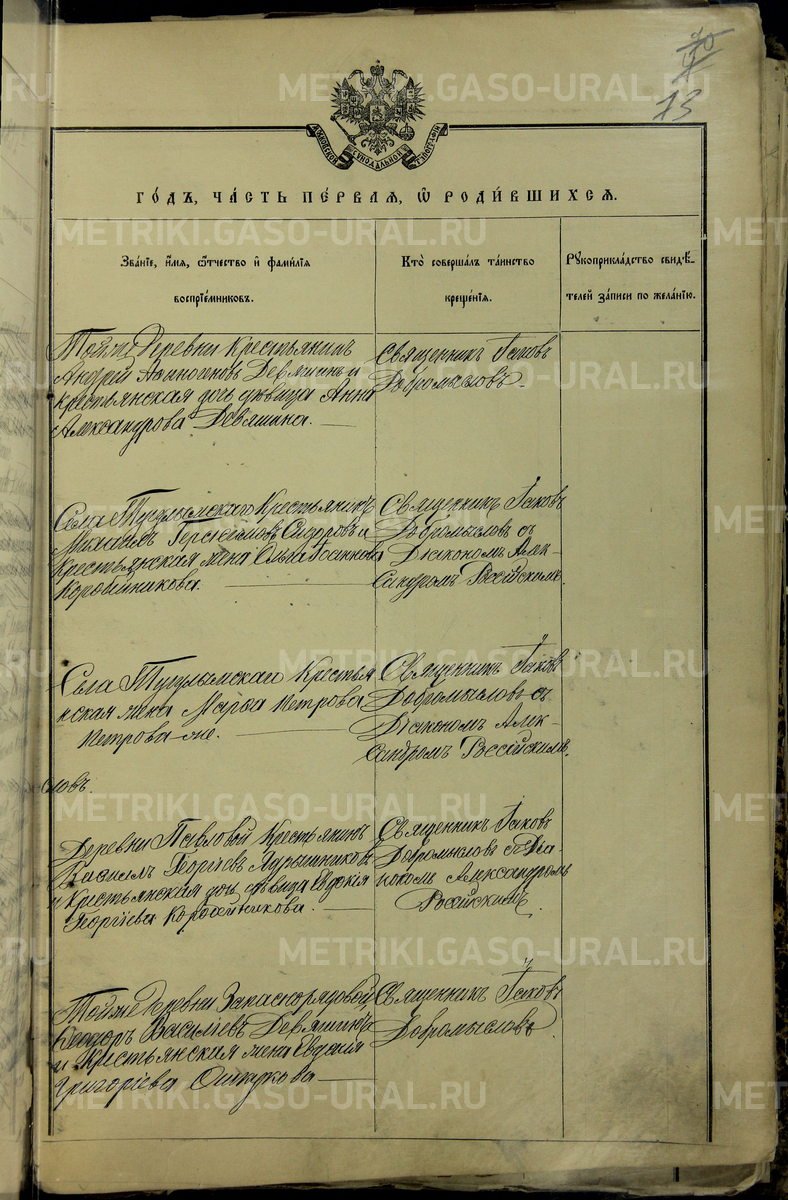 70
4
73
МОСКОВСКОЙ СѴНОДАЛЬНОЙ ТИПОГРАФІИ
ГО́ДЪ, ЧА́СТЬ ПЕ́РВАЯ, Ѡ РОДИ́ВШИХСЯ.
Зва́нїе, и́мя, ѻ҆́тчество и҆ фами́лїя
воспрїе́мниковъ.
Кто̀ соверша́лъ та́инство
креще́нїя.
Рꙋкоприкла́дство свидѣ́-
телей за́писи по жела́нїю.
Тойже Деревни Крестьянинъ
Андрей Девяшинъ и
крестьянская дочь девица Анна
Александрова Девяшина.
Священникъ Іаковъ
Добромысловъ.
Села Тугулымскаго Крестьянинъ
Сидоровъ и
Крестьянская жена Ольга Іоаннова
Коробейникова.
Священникъ Іаковъ
Добромысловъ съ
Діакономъ Алек-
сандромъ Россійскимъ.
Села Тугулымскаго Крестья
нская жена Марья Петрова
Петрова-же.
Священникъ Іаковъ
Добромысловъ съ
Діакономъ Алек-
сандромъ Россійскимъ.
словъ.
Деревни Павловой Крестьянинъ
Георгіевъ
и Крестьянская дочь девица Евдокія
Георгіева Коробейникова.
Священникъ Іаковъ
Добромысловъ съ Діа-
кономъ Александромъ
Россійскимъ.
Тойже Деревни
Ѳеодоръ Василіевъ Девяшинъ
и Крестьянская жена
Григоріева
Священникъ Іаковъ
Добромысловъ.
METRIKI.GASO-URAL.RU